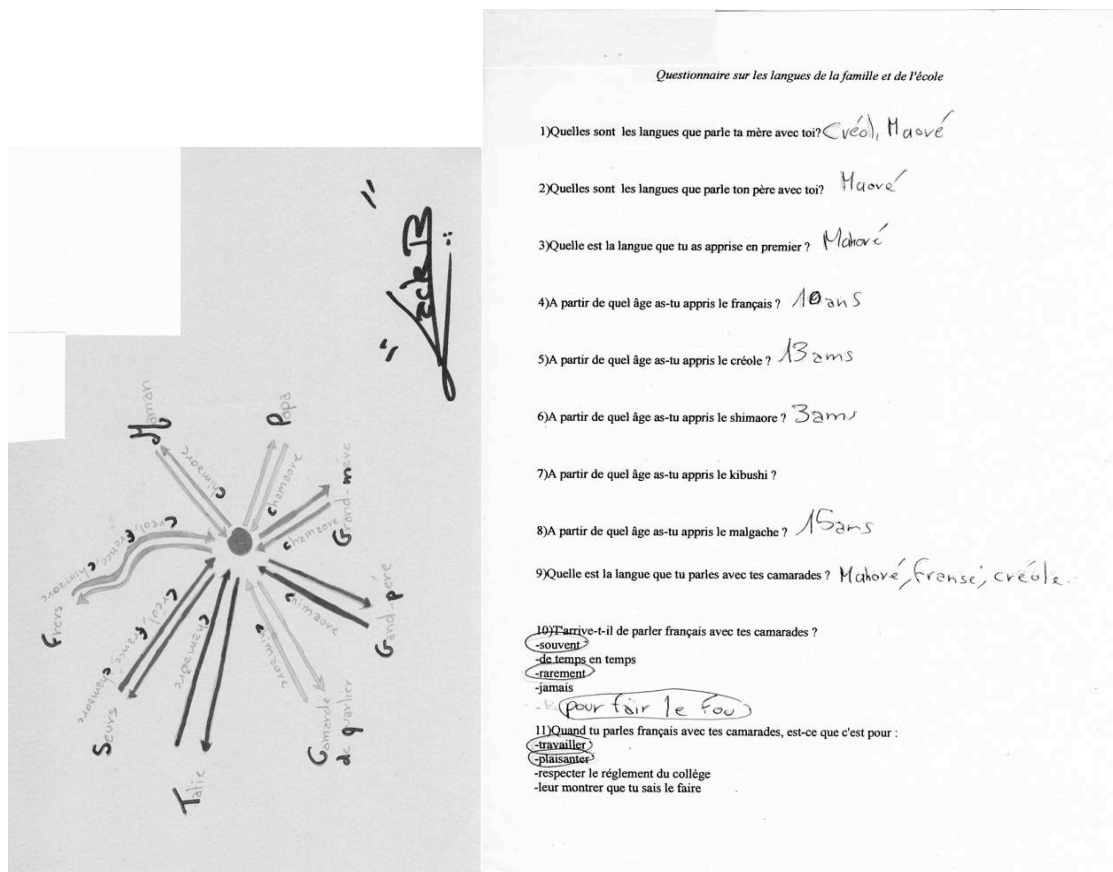 Maman
Papa
chimaore
chamaore
Grand-mère
chamaore
Frers
chimaore
créoli
Seurs
chamaore
créoli
Tatie
chamaore
Camarde
de quarlier
chimaore
Gand-père
chimaore
Questionnaire sur les langues de la famille et de l'école
1)Quelles sont les langues que parle ta mère avec toi? Créol, Maoré
2)Quelles sont les langues que parle ton père avec toi? Maoré
3)Quelle est la langue que tu as apprise en premier ? Mahoré
4)A partir de quel âge as-tu appris le français ? 10 ans
5)A partir de quel âge as-tu appris le créole ? 13 ams
6)A partir de quel âge as-tu appris le shimaore ? 3 ams
7)A partir de quel âge as-tu appris le kibushi ?
8)A partir de quel âge as-tu appris le malgache ? 15 ams
9)Quelle est la langue que tu parles avec tes camarades ? Mahoré, franse, créole.
10)T'arrive-t-il de parler français avec tes camarades ?
-souvent
-de temps en temps
-rarement
-jamais
pour fair le fou
11)Quand tu parles français avec tes camarades, est-ce que c'est pour :
-travailler
-plaisanter
-respecter le réglement du collège
-leur montrer que tu sais le faire